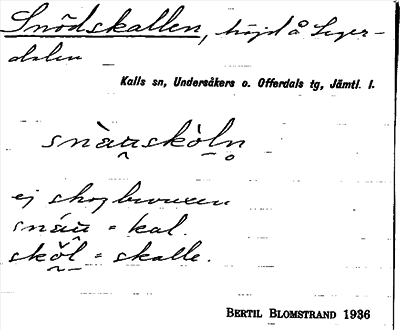 Snödskallen, höjd å Suger-
dalen
Kalls sn, Undersåkers o. Offerdals tg, Jämtl. l.
snàu̯skò̱ln̥
ej skogbevuxen
snáu̯ = kal.
skö̱̀l = skalle.
BERTIL BLOMSTRAND 1936